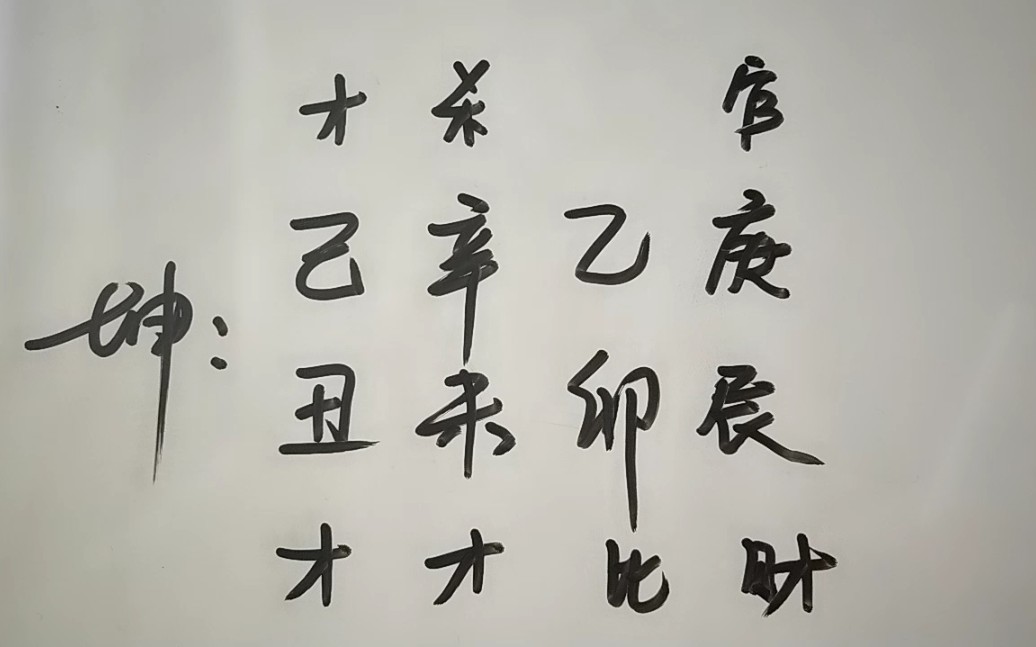 才 杀 官
己 辛 乙 庚
坤：
丑 未 卯 辰
才 才 比 财